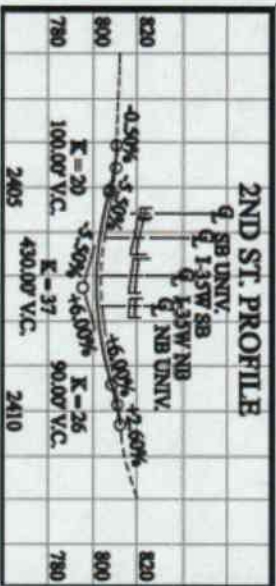 2ND ST. PROFILE
℄ SB UNIV.
℄ I-35W SB
℄ I-35W NB
℄ NB UNIV.
820
800
780
820
800
780
-0.50%
-5.50%
-5.50%
+6.00%
+6.00%
+2.60%
K = 20
100.00' V.C.
K = 37
430.00' V.C.
K = 26
90.00' V.C.
2405
2410